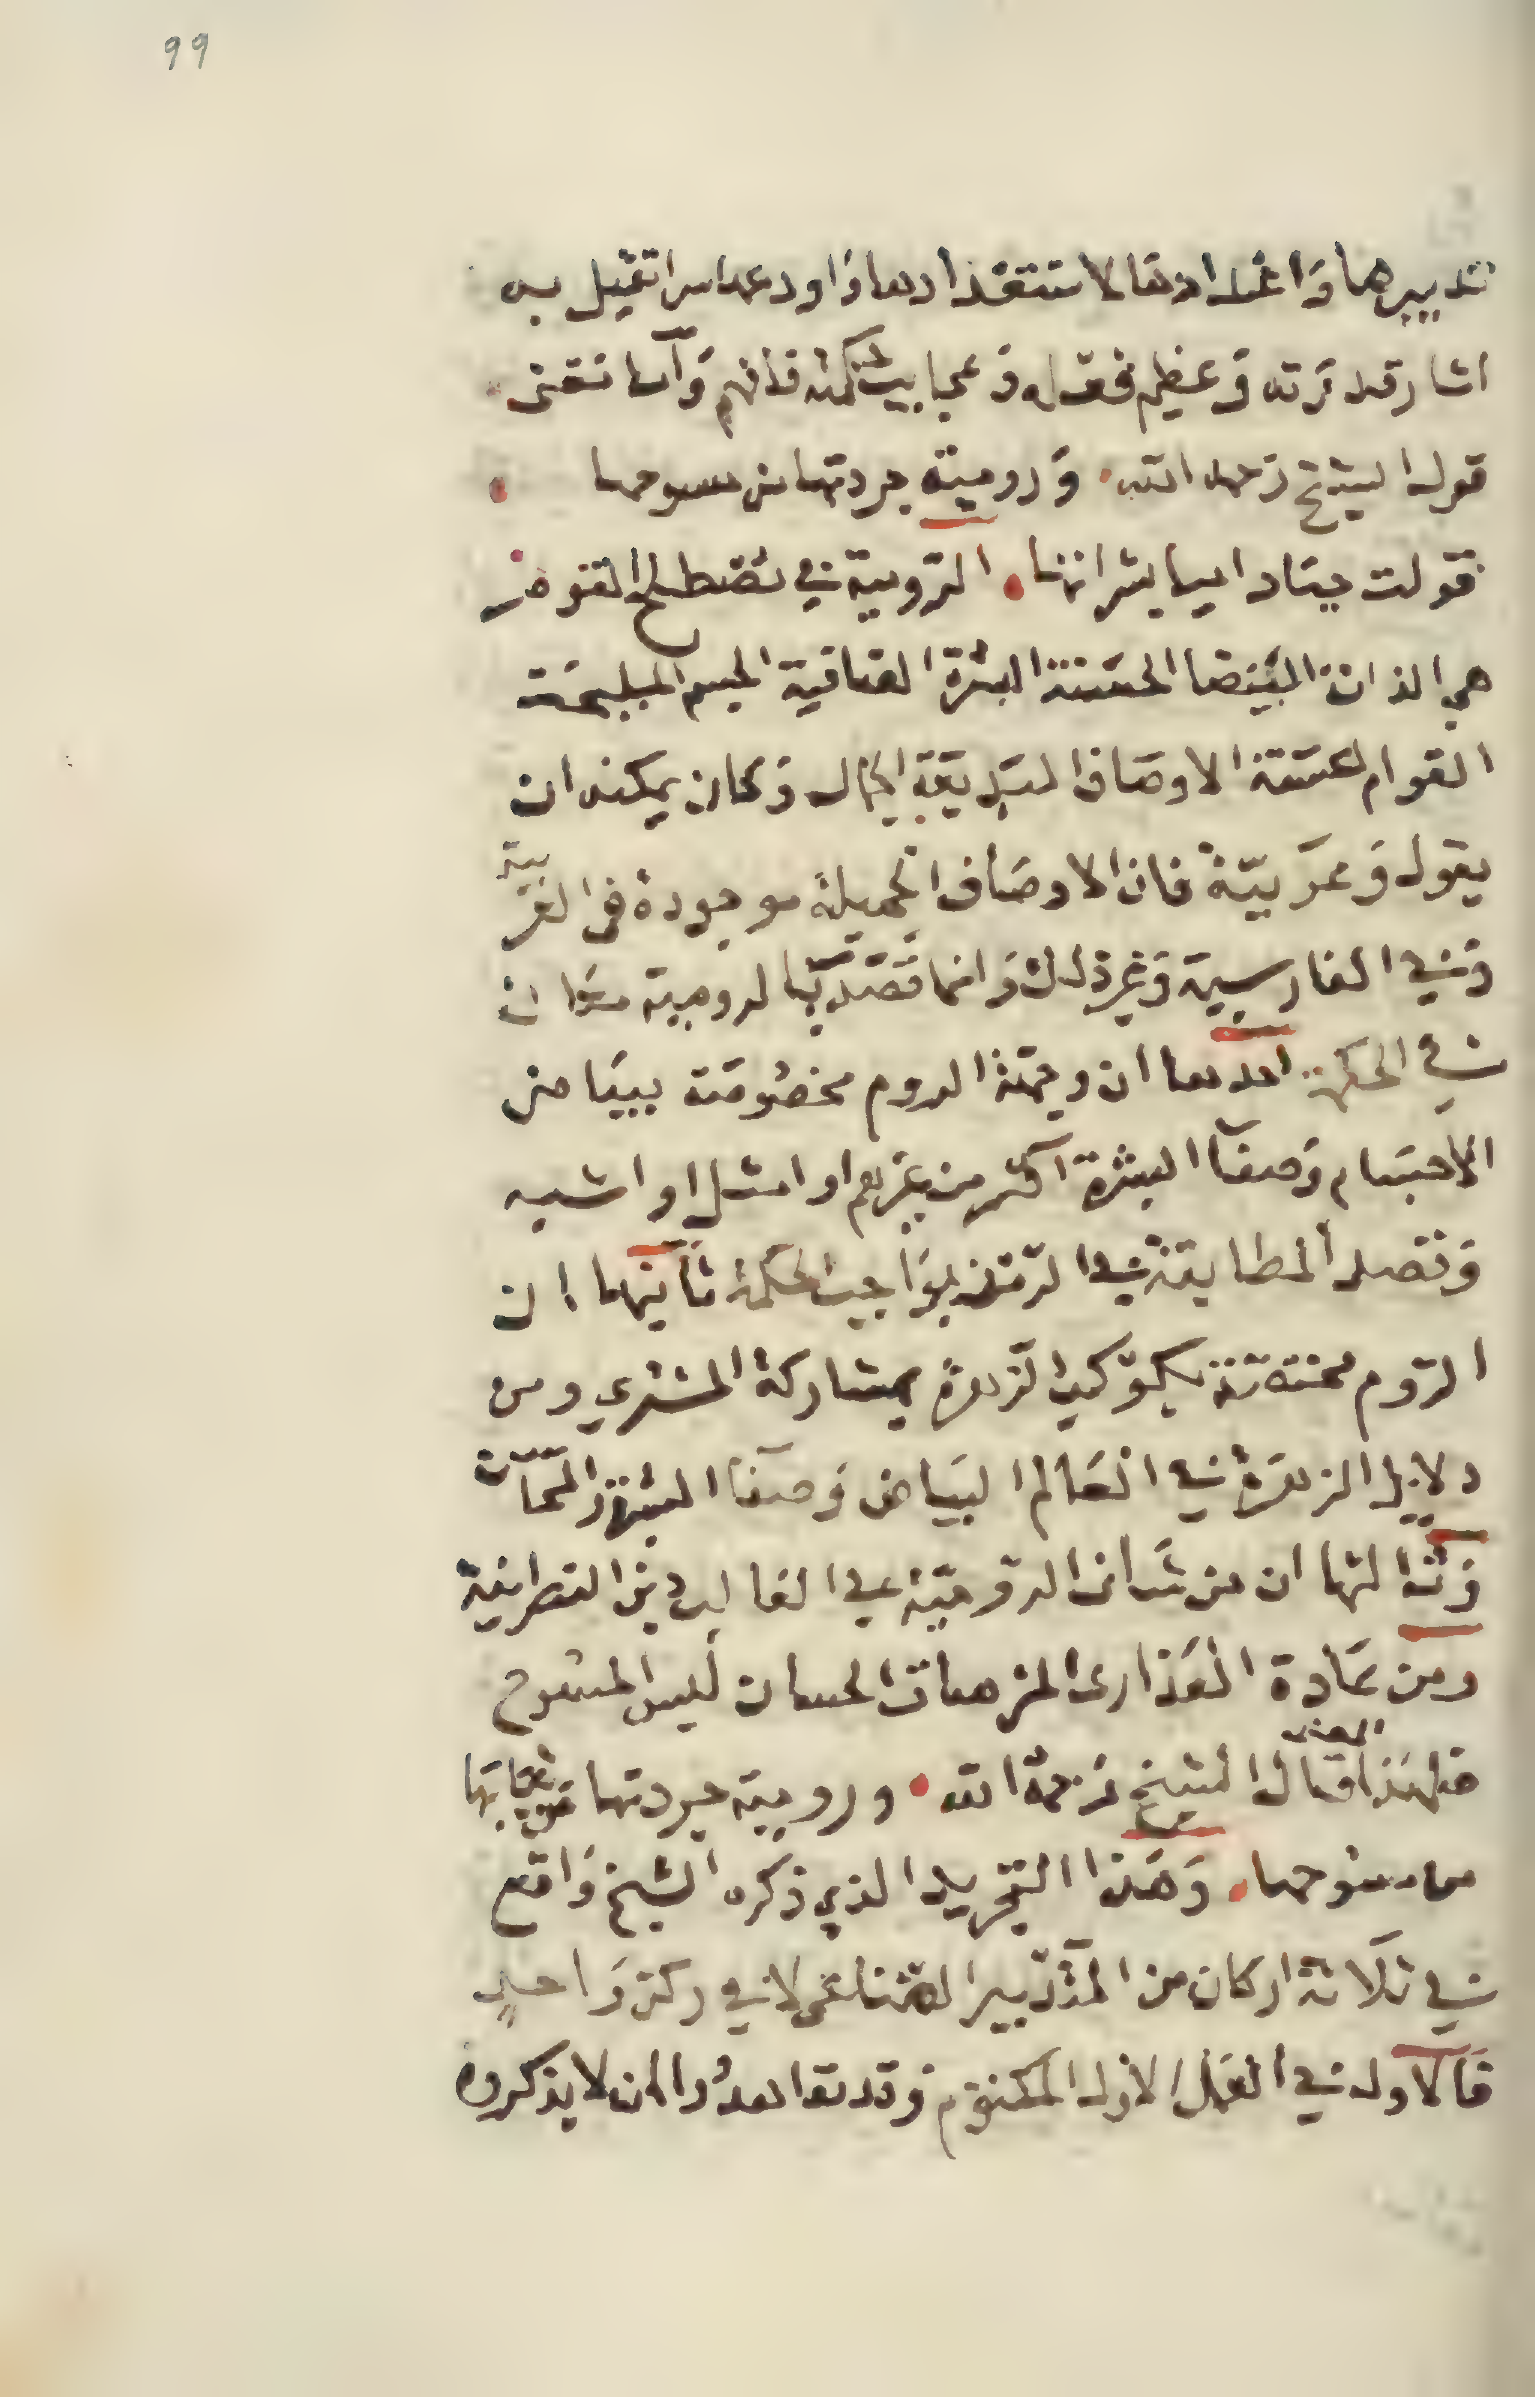 99
تدبيرها واعدادها لاستعدادها واودعها سرا تميل به
اشار قدرته وعظيم فضله وعجايب حكمته فافهم
قول الشيخ رحمه الله ورومية جردتها من مسوحها
الرومية في مصطلح القوم
هي الذات البيضا الحسنة البشرة الصافية الجسم المليحة
القوام الحسنة الاوصاف البديعة الجمال وكان يمكنه ان
يقول وعربية فان الاوصاف الجميلة موجودة في العربية
وفي الفارسية وغير ذلك وانما قصد بالرومية معان
في الحكمة احدها ان وجهة الروم مخصوصة ببياض
الاجسام وصفا البشرة اكثر من غيرهم او امثل او اشبه
وقصد المطابقة في الرمز بواجب الحكمة ثانيها ان
الروم مختصة بكوكب الزهرة بمشاركة المشتري ومن
دلايل الزهرة في العالم البياض وصفا البشرة
وثالثها ان من شان الرومية في الغالب دين النصرانية
ومن عادة العذارى المترهبات الحسان لبس المسوح
فلهذا المعنى قال الشيخ رحمه الله ورومية جردتها من ثيابها
مسوحها وهذا التجريد الذي ذكره الشيخ واقع
في ثلاثة اركان من التدبير الصناعي لا في ركن واحد
فالاول في العمل الاول المكتوم وقد تعاهدوا ان لا يذكروه